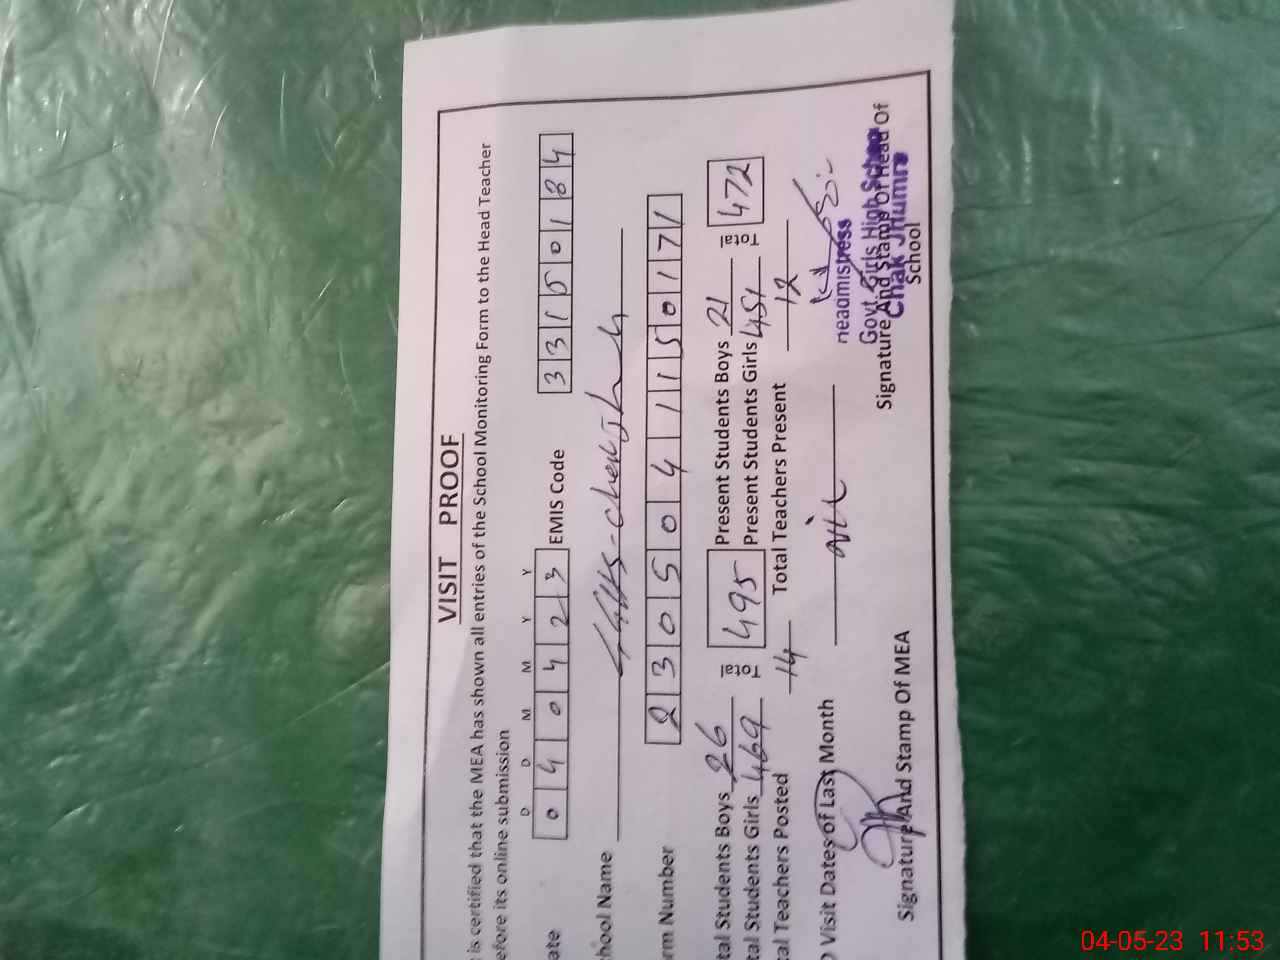 VISIT PROOF
is certified that the MEA has shown all entries of the School Monitoring Form to the Head Teacher
efore its online submission
D D M M Y Y
ate 0 4 0 4 2 3 EMIS Code 3 3 1 5 0 1 8 4
hool Name
rm Number 2 3 0 5 0 4 1 1 5 0 1 7 1
tal Students Boys 26 Total 495 Present Students Boys 21 Total 472
tal Students Girls 469 Present Students Girls 451
tal Teachers Posted 14 Total Teachers Present 12
Visit Dates of Last Month Nil
Headmistress
Govt. Girls High School
Chak Jhumra
Signature And Stamp Of MEA Signature And Stamp Of Head Of
School
04-05-23 11:53